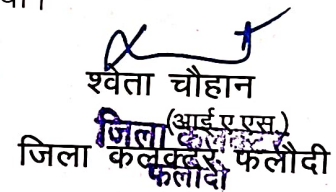 श्वेता चौहान
(आई ए एस)
जिला कलक्टर
जिला कलेक्टर, फलौदी
फलौदी